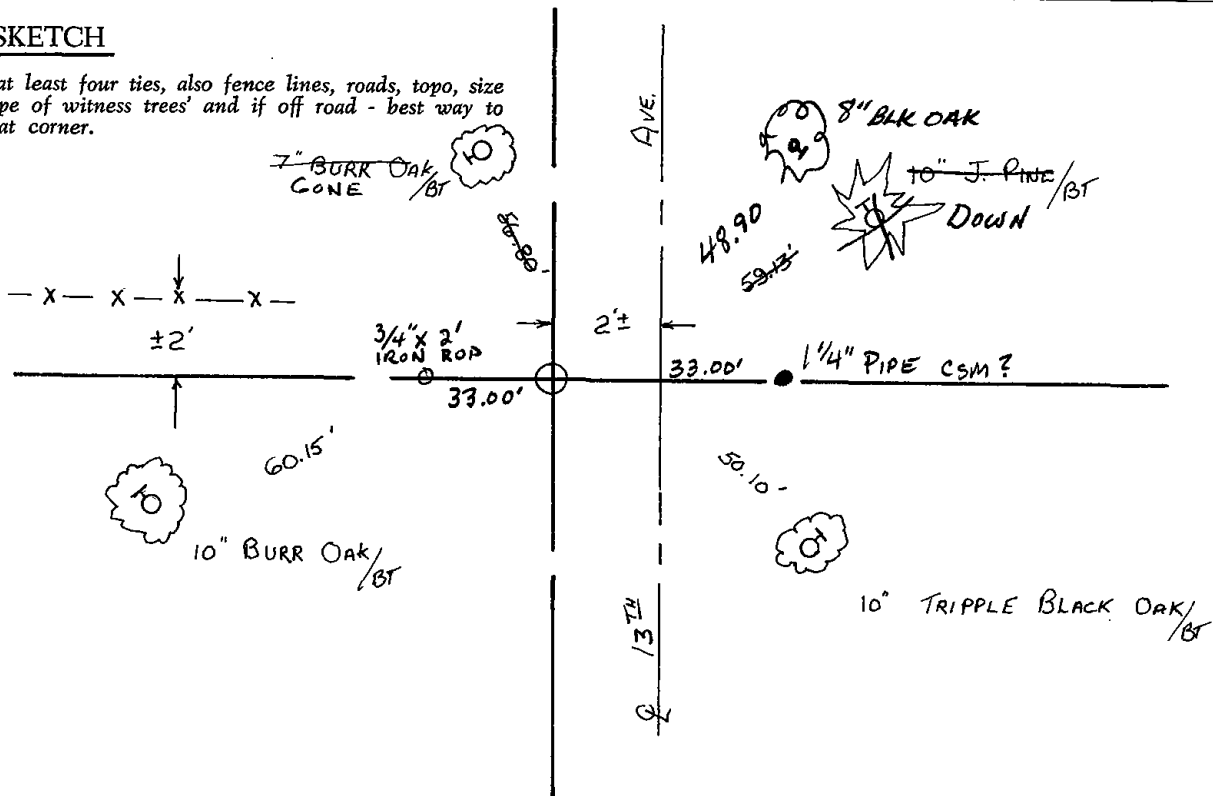 SKETCH
at least four ties, also fence lines, roads, topo, size
pe of witness trees' and if off road - best way to
at corner.
7" BURR OAK/BT
GONE
56.80-
AVE.
8" BLK OAK
10" J. PINE/BT
DOWN
48.90
59.13'
— X — X — X — X —
±2'
2'±
3/4" X 2'
IRON ROD
33.00'
33.00'
1 1/4" PIPE CSM?
60.15'
50.10-
10" BURR OAK/BT
10" TRIPPLE BLACK OAK/BT
℄ 13TH